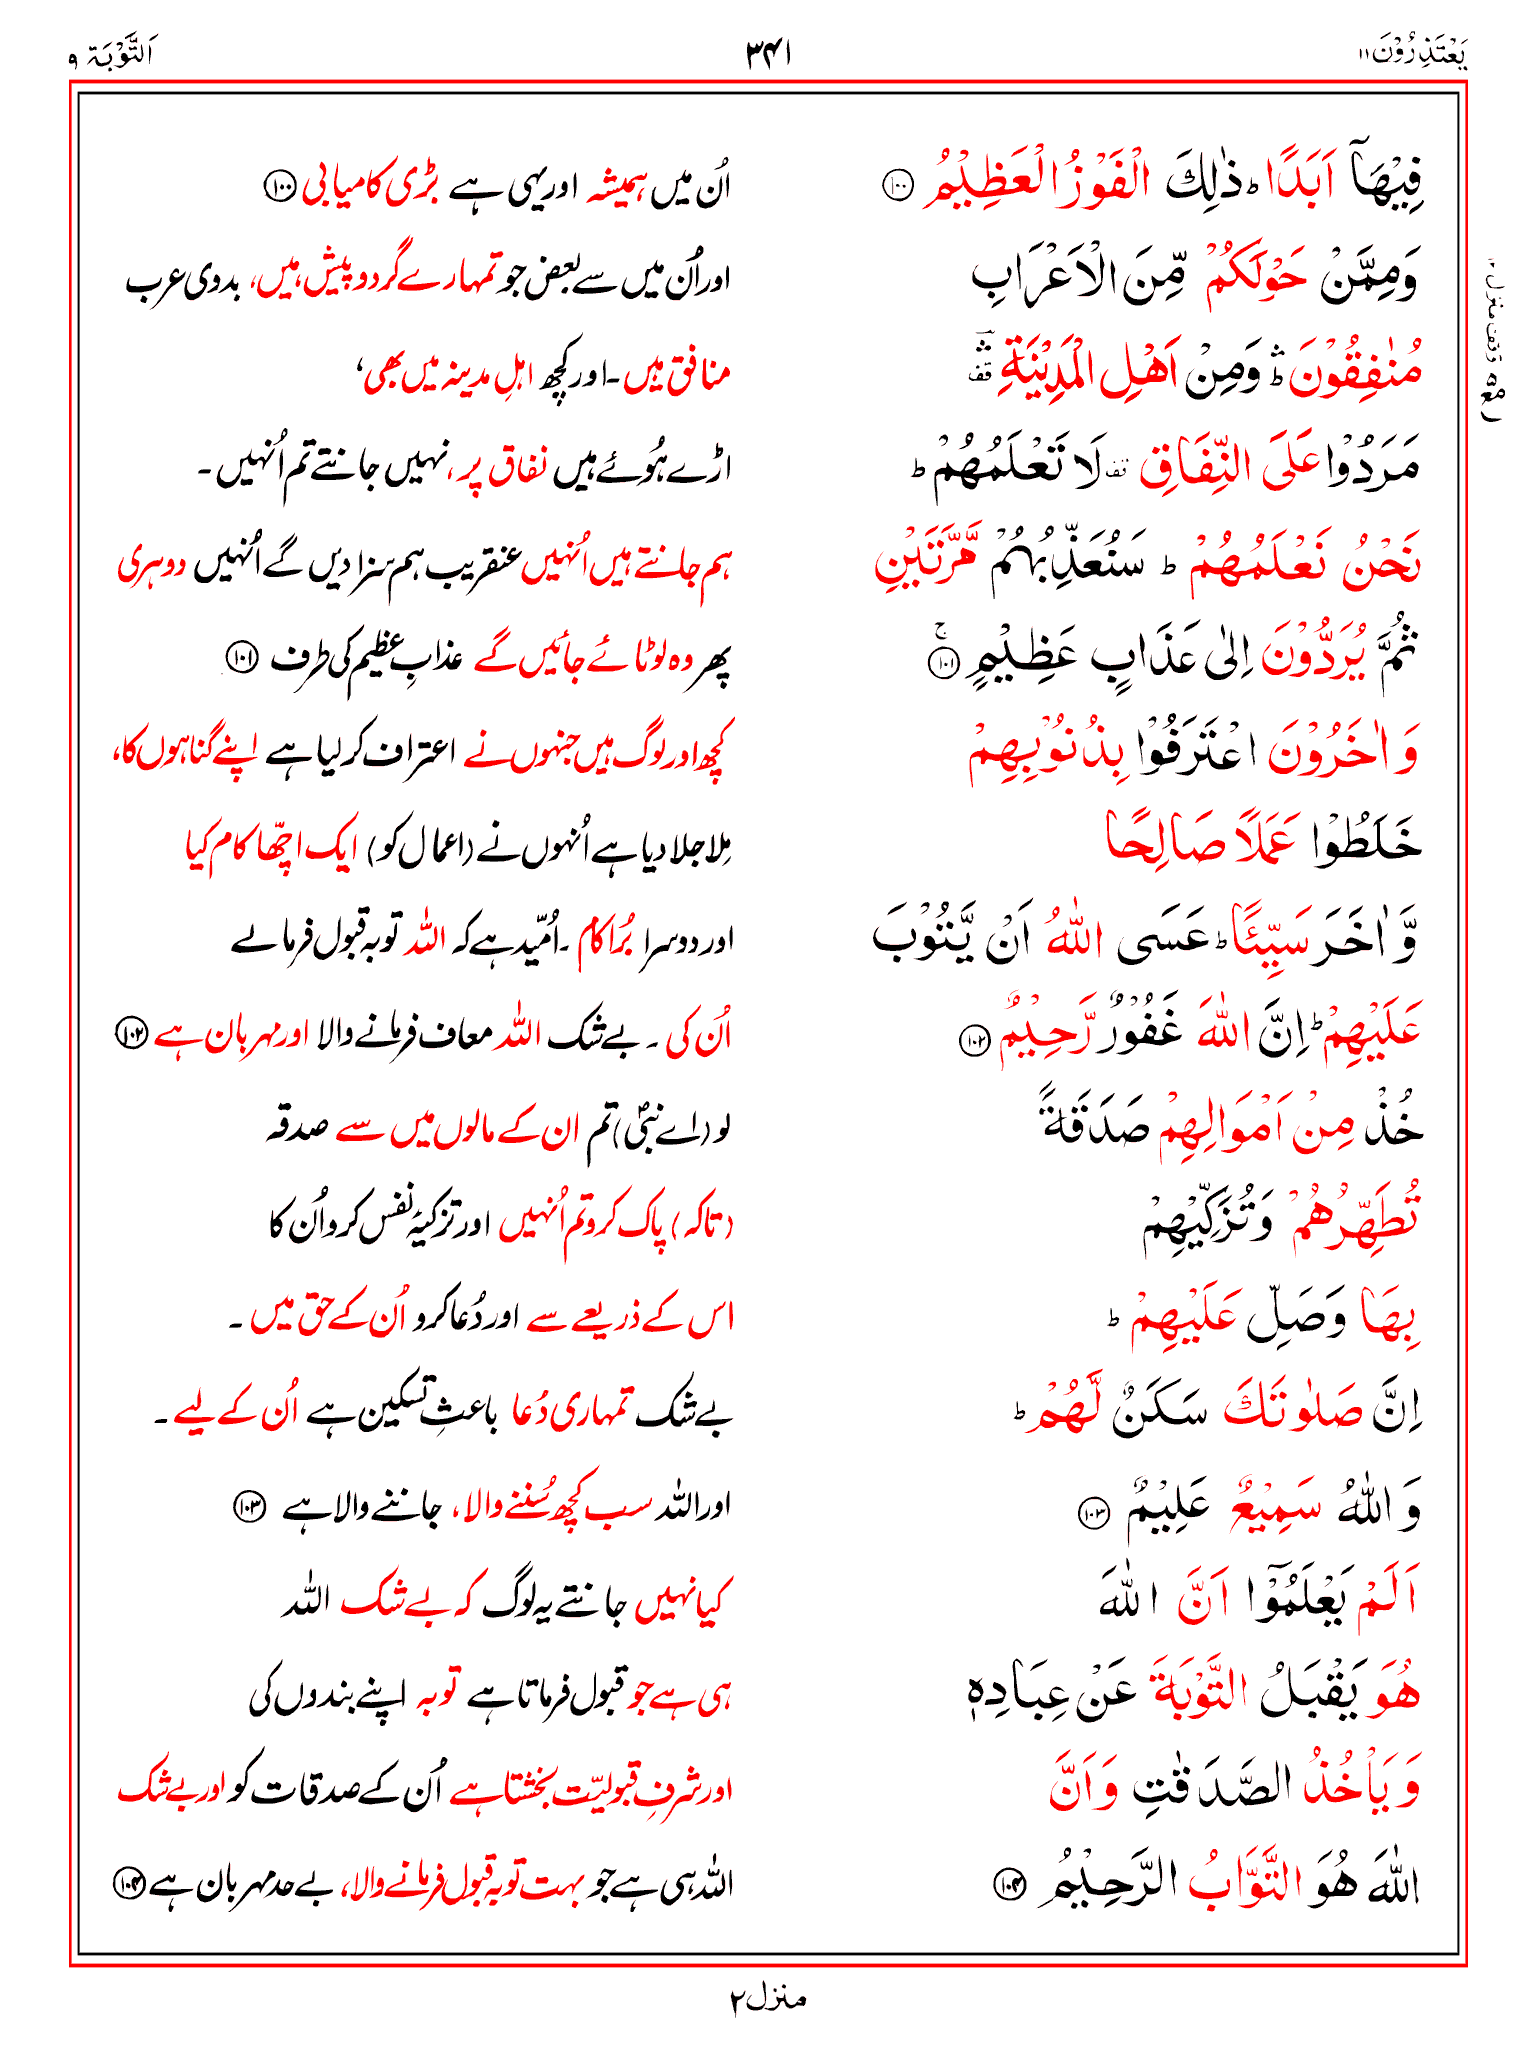 يَعْتَذِرُوْنَ ١١
٣٤١
اَلتَّوْبَة ٩
فِيْهَآ اَبَدًا ؕ ذٰلِكَ الْفَوْزُ الْعَظِيْمُ ﴿۱۰۰﴾
اُن میں ہمیشہ اور یہی ہے بڑی کامیابی ﴿۱۰۰﴾
وَمِمَّنْ حَوْلَكُمْ مِّنَ الْاَعْرَابِ
اور اُن میں سے بعض جو تمہارے گردو پیش ہیں، بدوی عرب
مُنٰفِقُوْنَ ۛؕ وَمِنْ اَهْلِ الْمَدِيْنَةِ ؔۛ قف
منافق ہیں۔ اور کچھ اہلِ مدینہ میں بھی،
مَرَدُوْا عَلَى النِّفَاقِ قف لَا تَعْلَمُهُمْ ؕ
اڑے ہُوئے ہیں نفاق پر، نہیں جانتے تم اُنہیں۔
نَحْنُ نَعْلَمُهُمْ ؕ سَنُعَذِّبُهُمْ مَّرَّتَيْنِ
ہم جانتے ہیں اُنہیں عنقریب ہم سزا دیں گے اُنہیں دوہری
ثُمَّ يُرَدُّوْنَ اِلٰى عَذَابٍ عَظِيْمٍ ۚ﴿۱۰۱﴾
پھر وہ لوٹائے جائیں گے عذابِ عظیم کی طرف ﴿۱۰۱﴾
وَ اٰخَرُوْنَ اعْتَرَفُوْا بِذُنُوْبِهِمْ
کچھ اور لوگ ہیں جنہوں نے اعتراف کر لیا ہے اپنے گناہوں کا،
خَلَطُوْا عَمَلًا صَالِحًا
مِلا جلا دیا ہے اُنہوں نے (اعمال کو) ایک اچّھا کام کیا
وَّ اٰخَرَ سَيِّئًا ؕ عَسَى اللّٰهُ اَنْ يَّتُوْبَ
اور دوسرا بُرا کام ۔ اُمّید ہے کہ اللہ توبہ قبول فرمالے
عَلَيْهِمْ ؕ اِنَّ اللّٰهَ غَفُوْرٌ رَّحِيْمٌ ﴿۱۰۲﴾
اُن کی ۔ بے شک اللہ معاف فرمانے والا اور مہربان ہے ﴿۱۰۲﴾
خُذْ مِنْ اَمْوَالِهِمْ صَدَقَةً
لو (اے نبیؐ) تم ان کے مالوں میں سے صدقہ
تُطَهِّرُهُمْ وَتُزَكِّيْهِمْ
(تاکہ) پاک کرو تم اُنہیں اور تزکیۂ نفس کرو اُن کا
بِهَا وَصَلِّ عَلَيْهِمْ ؕ
اس کے ذریعے سے اور دُعا کرو اُن کے حق میں ۔
اِنَّ صَلٰوتَكَ سَكَنٌ لَّهُمْ ؕ
بے شک تمہاری دُعا باعثِ تسکین ہے اُن کے لیے ۔
وَ اللّٰهُ سَمِيْعٌ عَلِيْمٌ ﴿۱۰۳﴾
اور اللہ سب کچھ سُننے والا، جاننے والا ہے ﴿۱۰۳﴾
اَلَمْ يَعْلَمُوْٓا اَنَّ اللّٰهَ
کیا نہیں جانتے یہ لوگ کہ بے شک اللہ
هُوَ يَقْبَلُ التَّوْبَةَ عَنْ عِبَادِهٖ
ہی ہے جو قبول فرماتا ہے توبہ اپنے بندوں کی
وَ يَاْخُذُ الصَّدَقٰتِ وَ اَنَّ
اور شرفِ قبولیّت بخشتا ہے اُن کے صدقات کو اور بے شک
اللّٰهَ هُوَ التَّوَّابُ الرَّحِيْمُ ﴿۱۰۴﴾
اللہ ہی ہے جو بہت توبہ قبول فرمانے والا، بے حد مہربان ہے ﴿۱۰۴﴾
منزل ۲